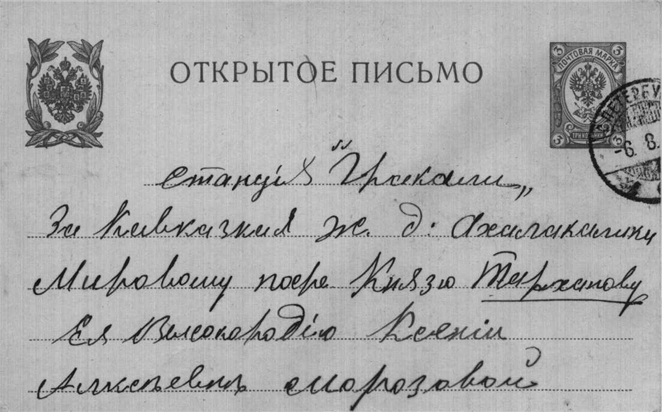 ОТКРЫТОЕ ПИСЬМО
ПОЧТОВАЯ МАРКА
3 3
3 3
С.ПЕТЕРБУ
-6. 8.
станція "Гракали"
За Кавказкия ж. д: Ахалкалаки
Мировому посре Князю Тарханову
Ея Высокородію Ксеніи
Алексѣевнѣ Морозовой